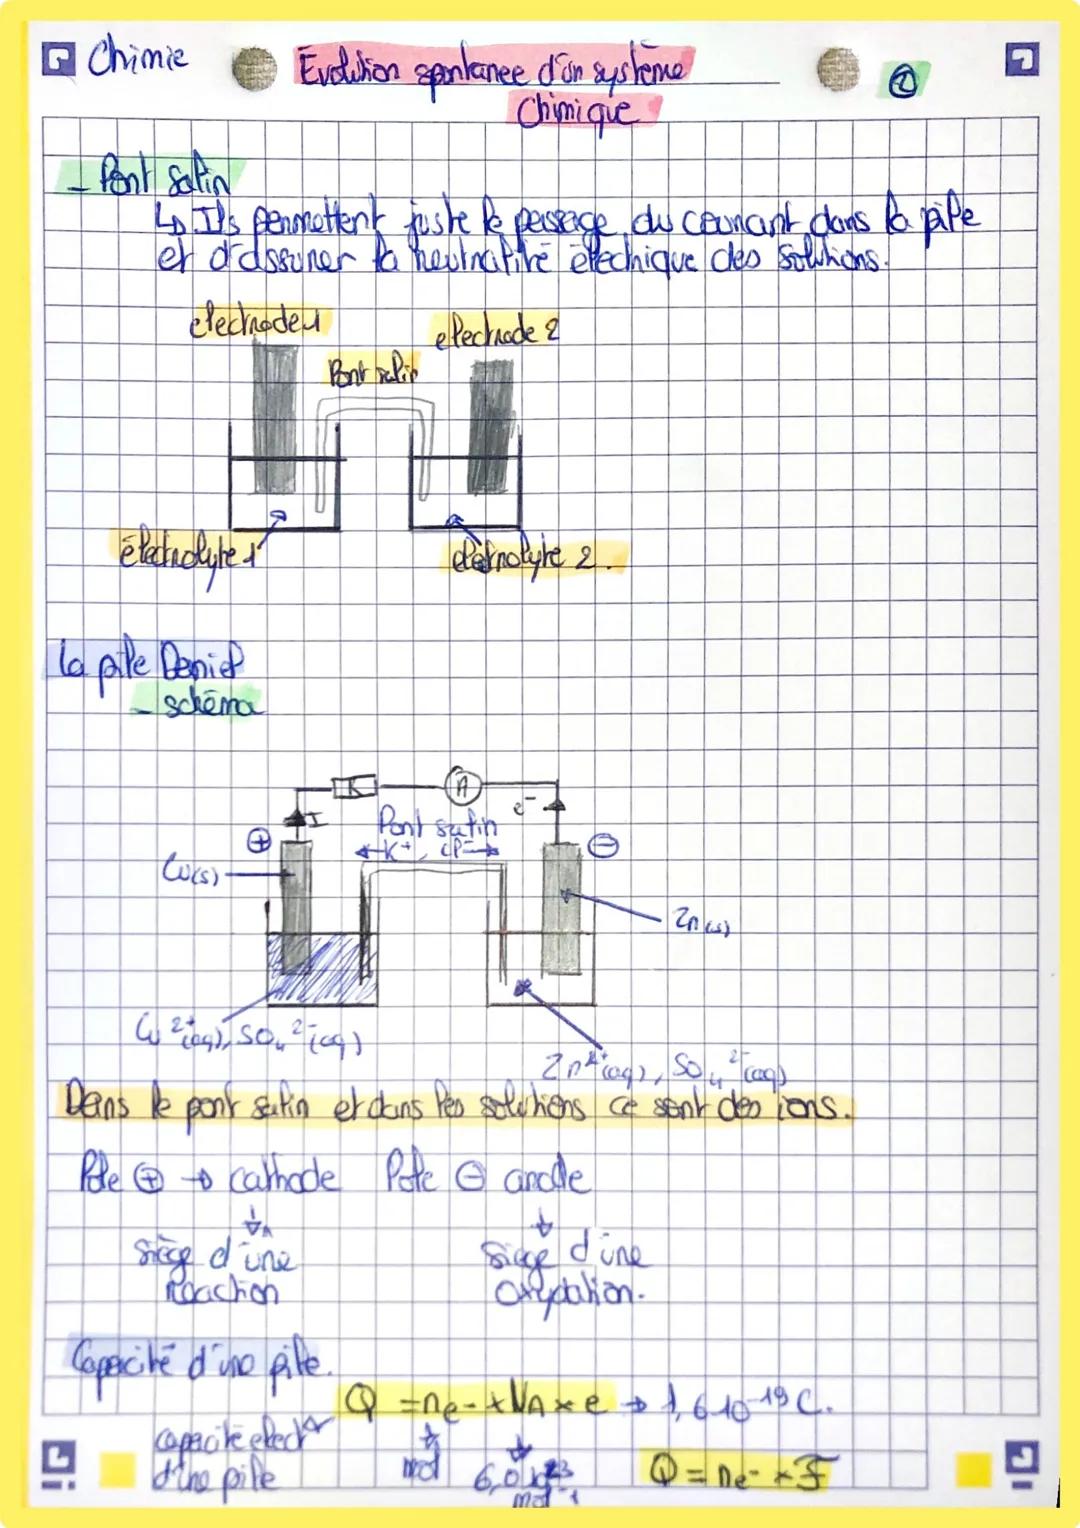 Chimie
Evolution spontanee d'un système
Chimique
②
- Pont salin
↳ Ils permettent juste le passage du courant dans la pile
et d'assurer la neutralité électrique des solutions.
electrode 1
electrode 2
Pont salin
électrolyte 1
électrolyte 2.
la pile Daniel
- schéma
K
A
I
e-
Pont salin
K+, Cl-
+
-
Cu(s)
Zn(s)
Cu2+(aq), SO4 2-(aq)
Zn2+(aq), SO4 2-(aq)
Dans le pont salin et dans les solutions ce sont des ions.
Pole ⊕ → cathode Pole ⊖ anode
siège d'une
siège d'une
réaction
oxydation.
Capacité d'une pile.
Q = ne- x NA x e → 1,6.10-19 C.
capacité elect
d'une pile
mol
6,0.10 23
mol-1
Q = ne- x F